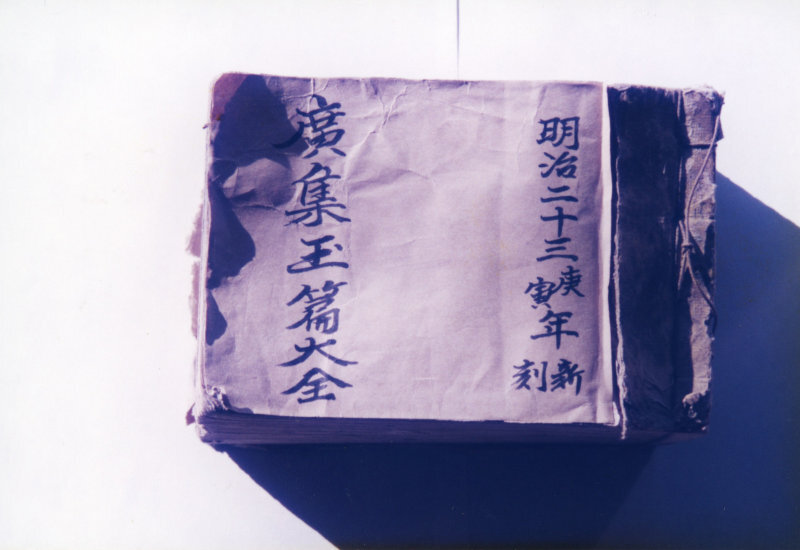 明治二十三庚寅年新刻
廣集玉篇大全